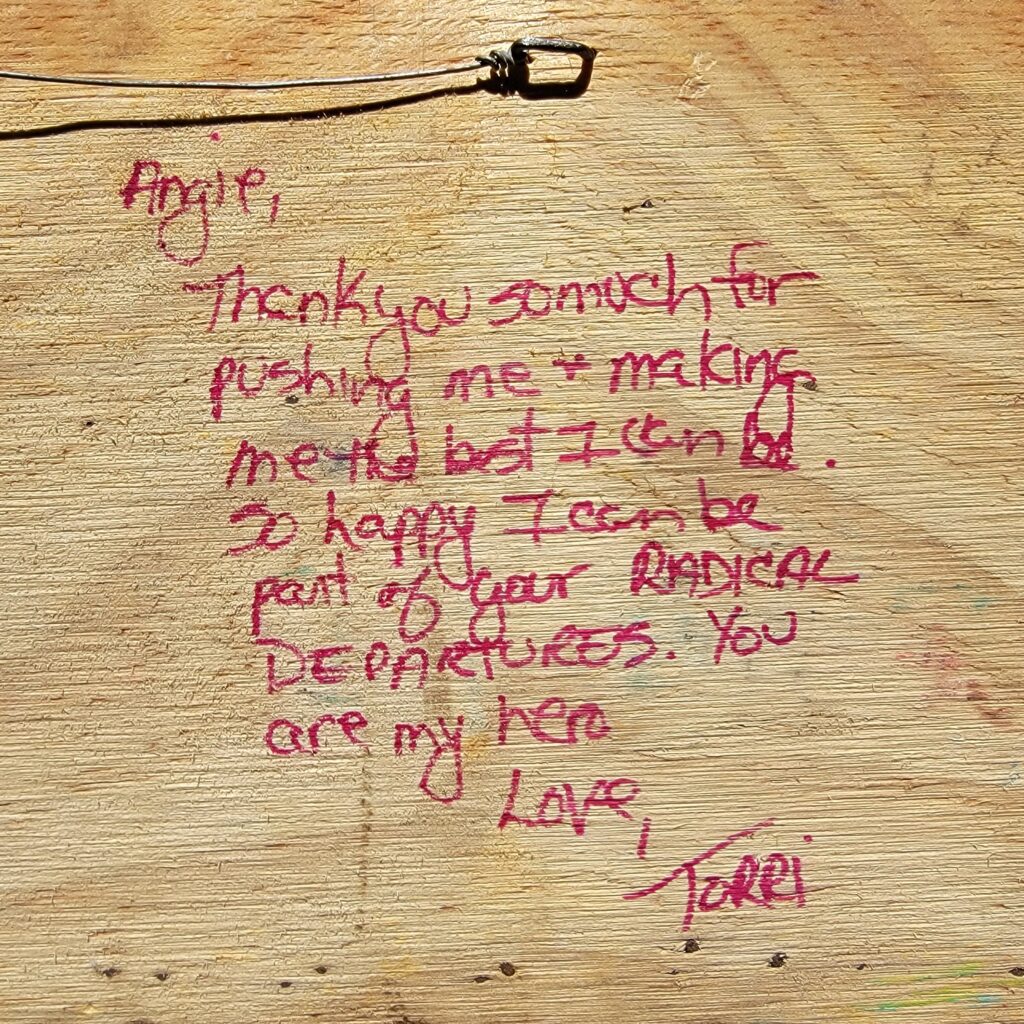 Angie,
Thank you so much for
pushing me + making
me the best I can be.
So happy I can be
part of your RADICAL
DEPARTURES. You
are my hero
Love,
Torri